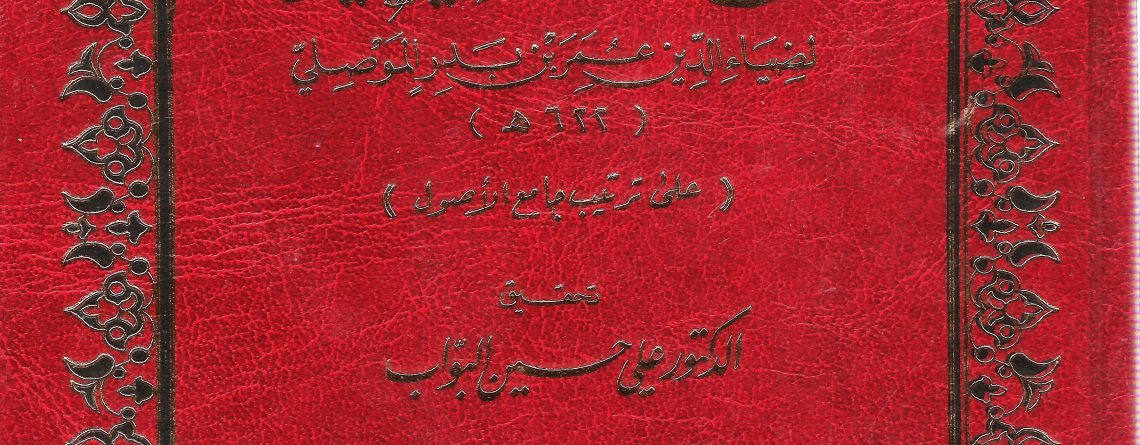 لِضِيَاءِ الدِّيْن عُمَرَ بْن بَدرِ المَوْصِليّ
( ٦٢٢ هـ )
( على ترتيب جامع الأصول )
تحقيق
الدكتور علي حسين البوّاب